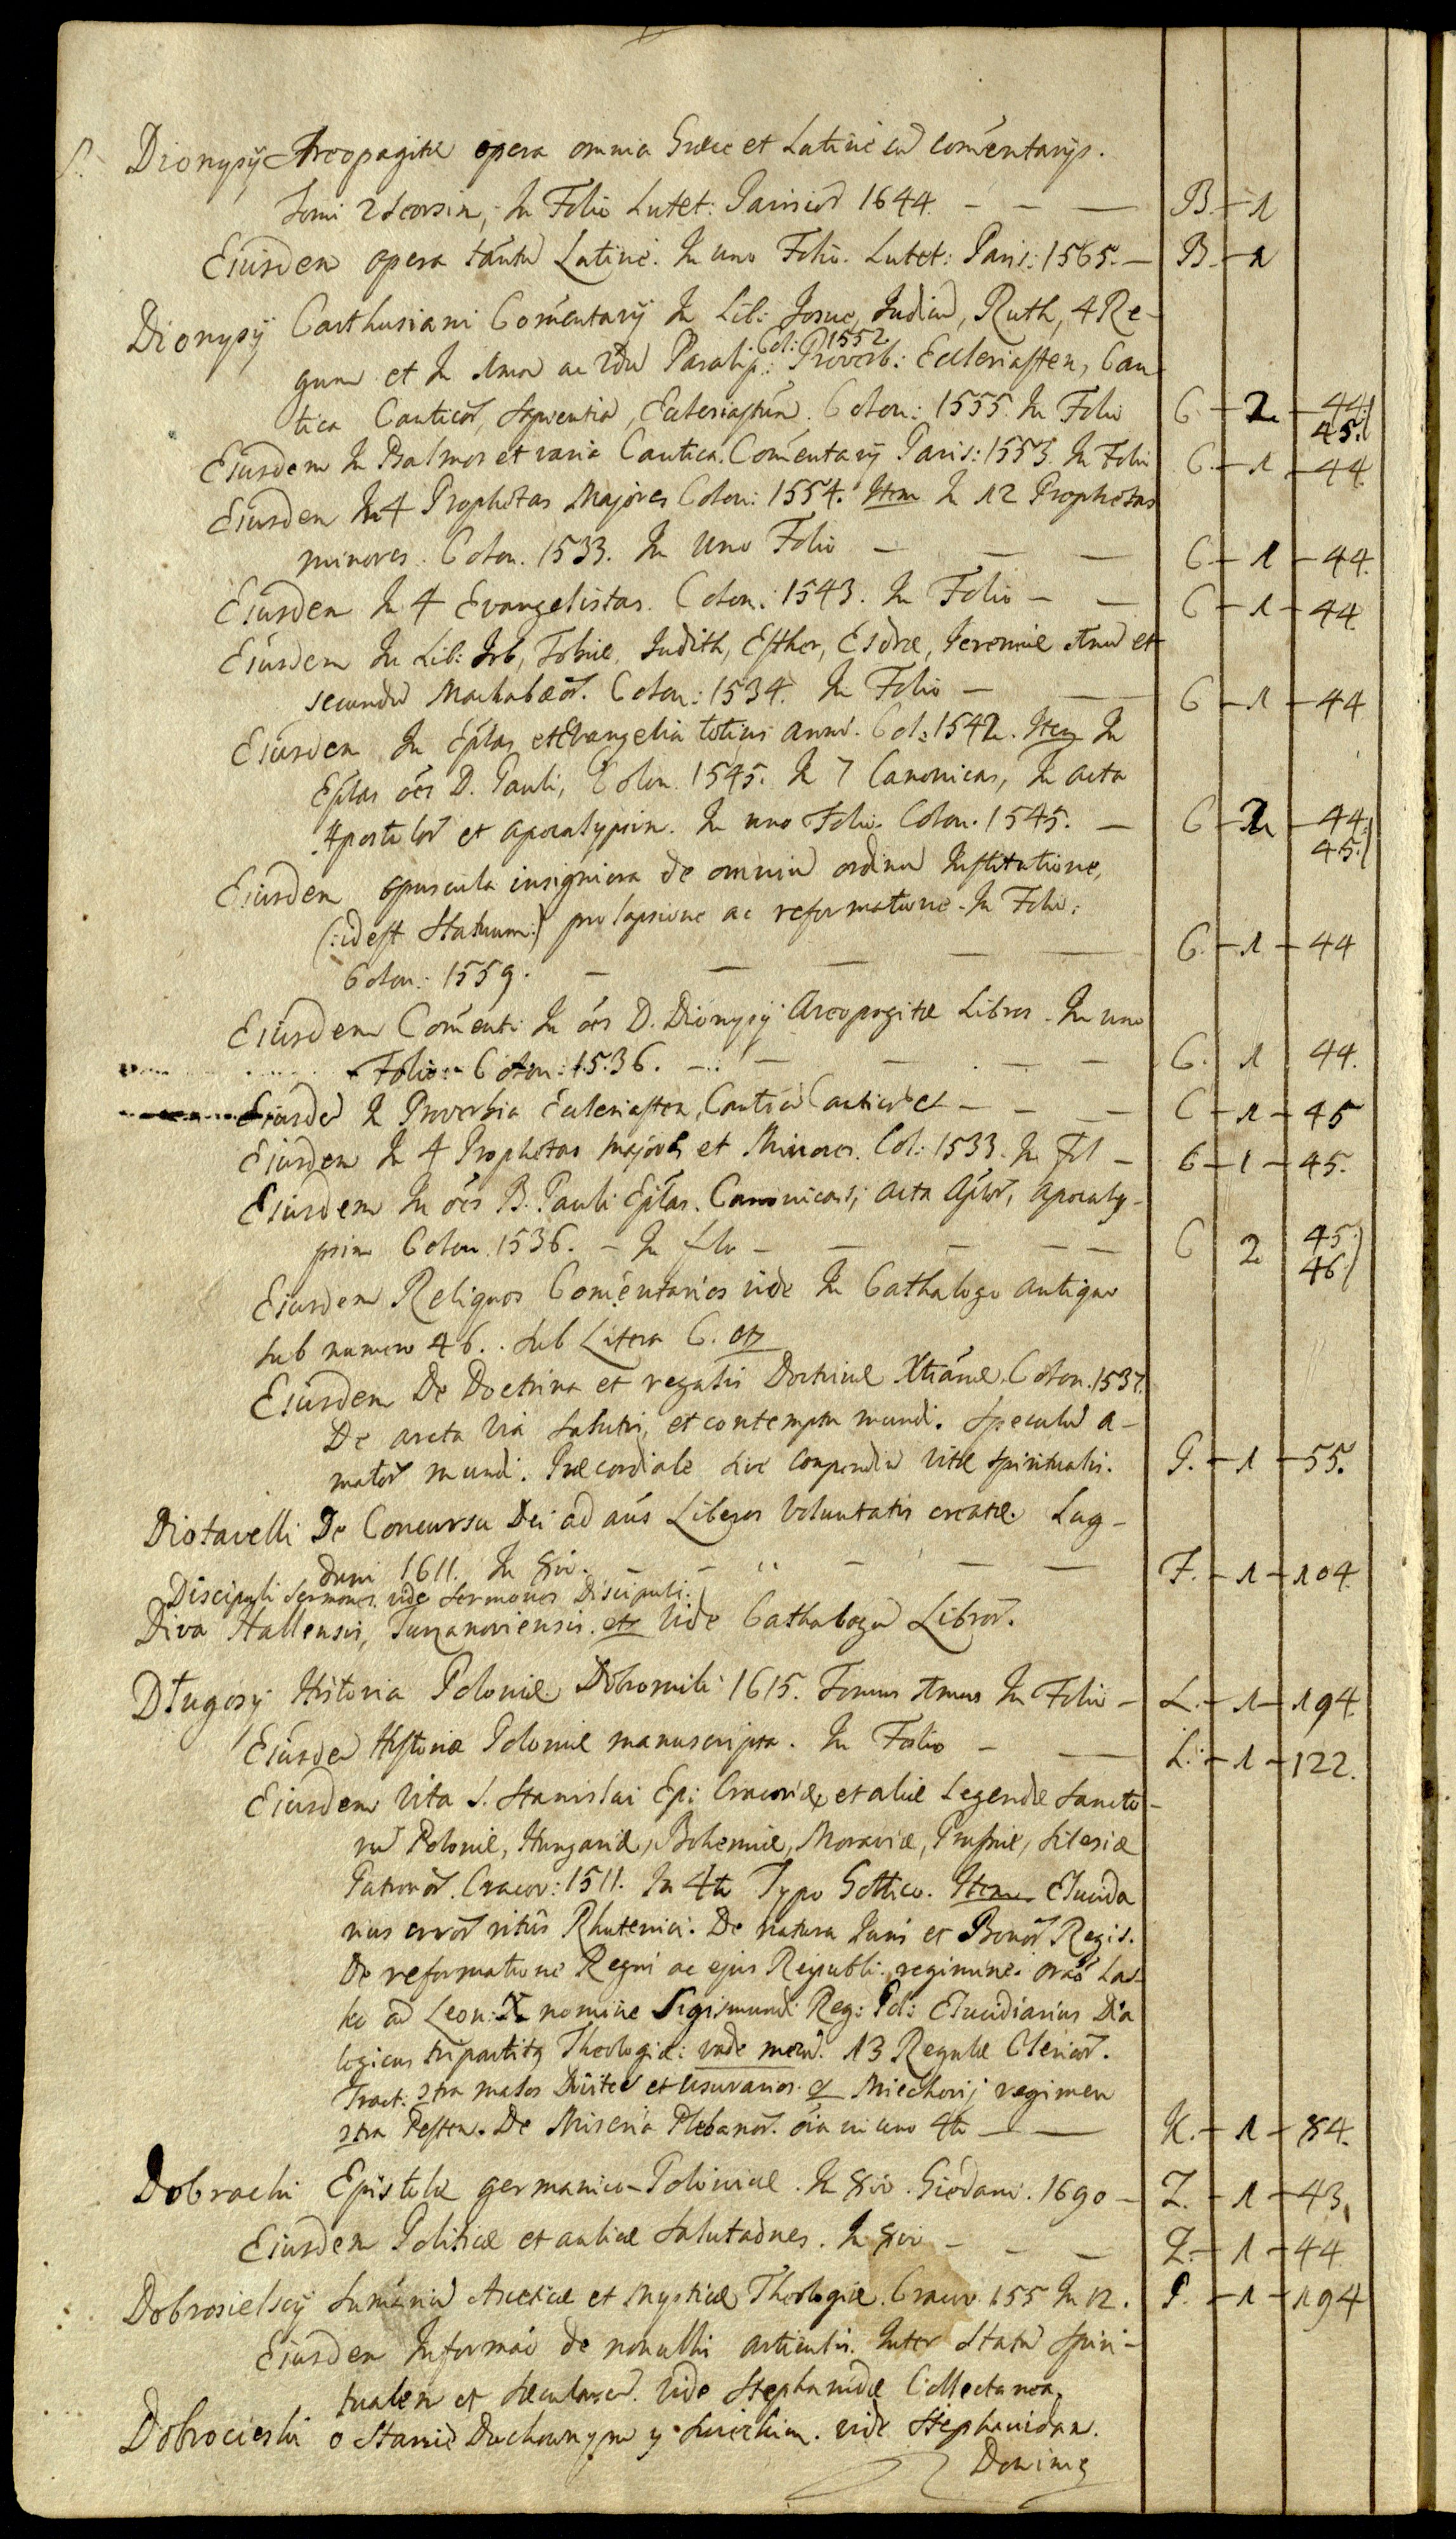 S. Dionysÿ Areopagitæ opera omnia Græce et Latine cū coḿentarÿs.
Tomi 2 seorsim, In Folio Lutet: Parisior̃ 1644. — — — B. — 1
Eiusdem opera tántū Latine. In uno Folio. Lutet: Paris: 1565. — B. — 1
Dionysÿ Carthusiani Coḿentarÿ In Lib: Josue, Judicū, Ruth, 4 Re-
Col: 1552
gum et In 1mū ac 2dū Paralip: Proverb: Ecclesiasten, Can
tica Canticor̃, Sapientiā, Ecclesiasticū. Colon: 1555. In Folio C. — 2 — 44.
45.
Eiusdem In Psalmos et varia Cantica. Coḿentarÿ Paris: 1553. In Folio C. — 1 — 44.
Eiusdem In 4 Prophetas Majores Colon: 1554. Item In 12 Prophetas
minores. Colon. 1533. In Uno Folio — — — C — 1 — 44.
Eiusdem In 4 Evangelistas. Colon: 1543. In Folio — — C — 1 — 44.
Eiusdem In Lib: Job, Tobiæ, Judith, Esther, Esdræ, Jeremiæ 1mū et
secundū Machabæor̃. Colon: 1534. In Folio — — C — 1 — 44
Eiusdem In Epĺas et Evangelia totius anni. Col: 1542. Item In
Epĺas oẽs D. Pauli, Colon. 1545. In 7 Canonicas, In acta
Apostolor̃ et apocalypsin. In uno Folio. Colon. 1545. — C — 2 — 44.
45.
Eiusdem opuscula insigniora de omniū ordinū Institutione,
(: id est Statuum :) prolapsione ac reformatione. In Folio:
Colon: 1559. — — — — — C. — 1 — 44
Eiusdem Coḿent: In oẽs D. Dionysÿ Areopagitæ Libros. In uno
Folio. Colon: 1536. — — — — — C. 1 44.
Eiusdē In Proverbia Ecclesiasten, Canticū Canticor̃ et — — — C — 1 — 45
Eiusdem In 4 Prophetas majores et Minores. Col: 1533. In Fol — C — 1 — 45.
Eiusdem In oẽs B. Pauli Epĺas. Canonicas, acta Ap̃lor̃, apocaly-
psin Colon. 1536. — In flo — — — — C 2 45.
46
Eiusdem Reliquos Coḿentarios vide In Cathalogo antiquo
sub numero 46. sub Litera C. etc
Eiusdem De Doctrina et regulis Doctrinæ Xtiánæ. Colon. 1537.
De arcta via salutis, et contemptu mundi. Speculū a-
mator̃ mundi. Præcordiale sive conpendiū vitæ spiritualis. G. — 1 — 55.
Diotavelli De Concursu Dei ad aús Liberos Voluntatis creatæ. Lug-
duni 1611. In 8vo. — — — — — F. — 1 — 104.
Discipuli Sermones. vide Sermones Discipuli.
Diva Hallensis, Turzanoviensis. etc vide Cathalogū Libror̃.
Długosÿ Historia Poloniæ Dobromili 1615. Tomus 1mus In Folio — L. — 1 — 194.
Eiusdē Historiæ Poloniæ manuscripta. In Folio — — L. — 1 — 122.
Eiusdem Vita S. Stanislai Epi: Cracoviæ, et aliæ Legendæ Sancto-
rū Poloniæ, Hungariæ, Bohemiæ, Moraviæ, Prussiæ, Silesiæ
Patronor̃. Cracov: 1511. In 4to Typo Gottico. Item Elucida
rius error̃ ritûs Rhutenici. De natura Juris et Bonor̃ Regis.
De reformatione Regni ac ejus Reipubli: regimine. oraõ Las-
ko ad Leon: X nomine Sigismundi Reg: Pol: Elucidiarius Dia
logicus tripartitæ Theologiæ: vade mecū. 13 Regulæ Clericor̃.
Tract: 2tra malos Divites et usurarios. & Miechovÿ regimen
2tra Pestem. De Miseria Plebanor̃. oía in uno 4to — — K. — 1 — 84.
Dobrachi Epistolæ germanico-Polonicæ. In 8vo. Giedani. 1690 — Z. — 1 — 43.
Eiusdem Politicæ et aulicæ Salutaões. In 8vo — — — Z. — 1 — 44
Dobrosielscÿ Sumáriū Asceticæ et mysticæ Theologiæ. Cracov. 155 In 12. P. — 1 — 194
Eiusdem Informaó de nonullis articulis. Inter Statū Spiri-
tualem et sæcularem. vide Stephanidæ Collectanea.
Dobrocieski o Stanie Duchownym y Swieckim. vide Stephanidan.
Doming